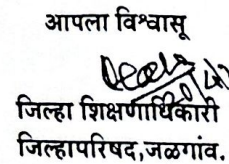 आपला विश्वासू
जिल्हा शिक्षणाधिकारी
जिल्हापरिषद,जळगांव.